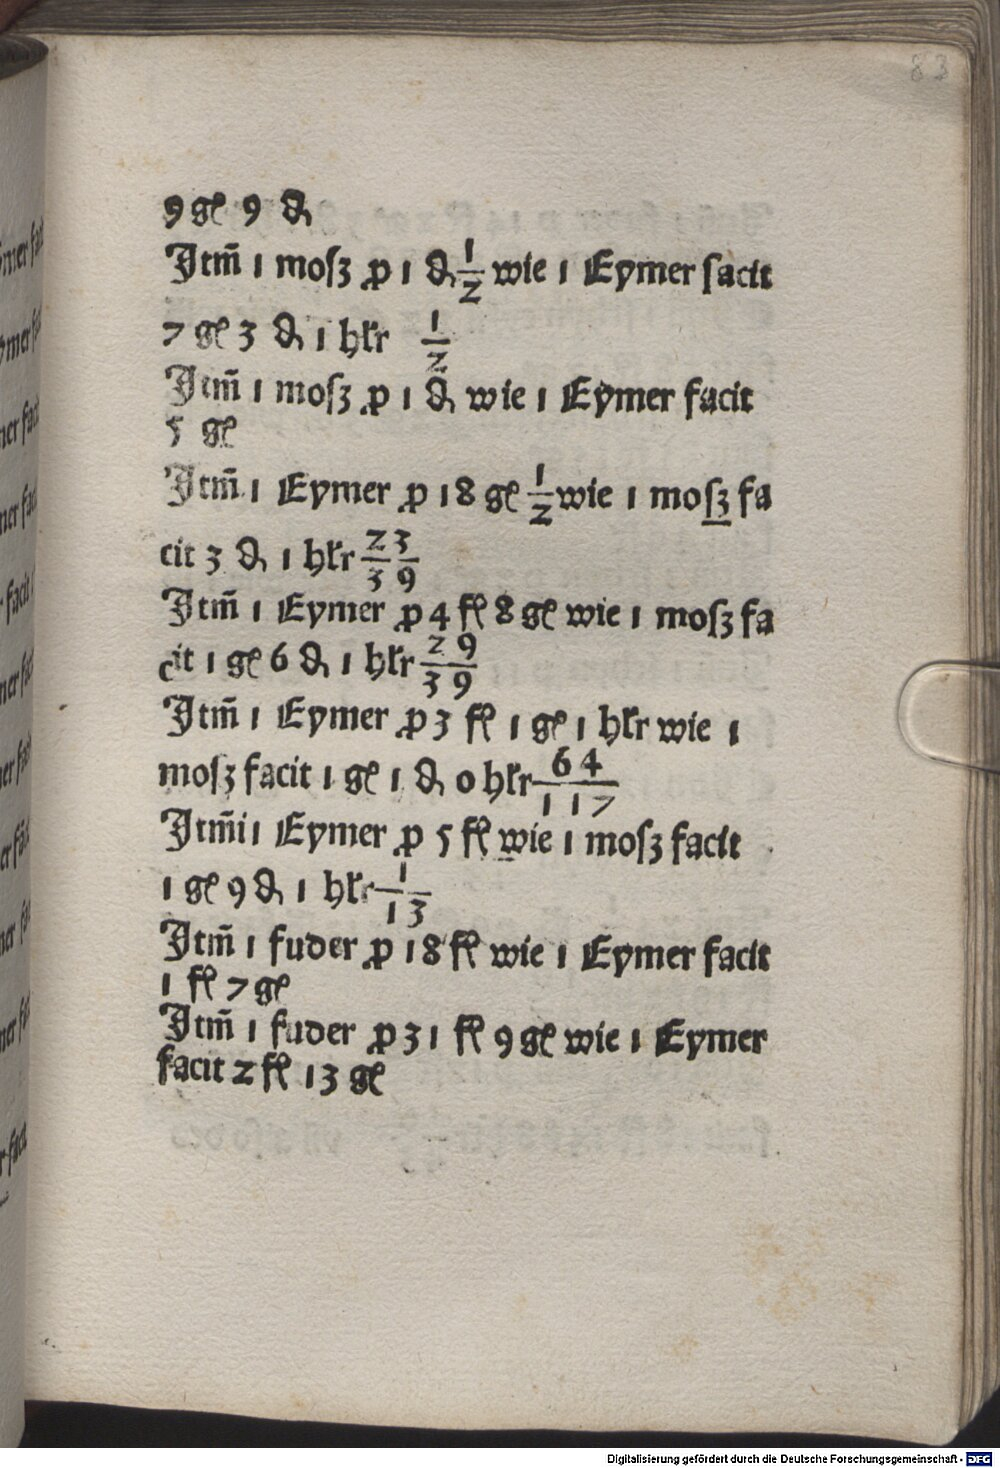 83
9 gꝭ 9 ₰
Jtm̄ 1 moſz ꝓ 1 ₰ 1/2 wie 1 Eymer facit
7 gꝭ 3 ₰ 1 hłr 1/2
Jtm̄ 1 moſz ꝓ 1 ₰ wie 1 Eymer facit
5 gꝭ
Jtm̄ 1 Eymer ꝓ 18 gꝭ 1/2 wie 1 moſz fa
cit 3 ₰ 1 hłr 23/39
Jtm̄ 1 Eymer ꝓ 4 fꝭ 8 gꝭ wie 1 moſz fa
cit 1 gꝭ 6 ₰ 1 hłr 29/39
Jtm̄ 1 Eymer ꝓ 3 fꝭ 1 gꝭ 1 hłr wie 1
moſz facit 1 gꝭ 1 ₰ 0 hłr 64/117
Jtm̄i 1 Eymer ꝓ 5 fꝭ wie 1 moſz facit
1 gꝭ 9 ₰ 1 hłr 1/13
Jtm̄ 1 fuder ꝓ 18 fꝭ wie 1 Eymer facit
1 fꝭ 7 gꝭ
Jtm̄ 1 fuder ꝓ 31 fꝭ 9 gꝭ wie 1 Eymer
facit 2 fꝭ 13 gꝭ
Digitalisierung gefördert durch die Deutsche Forschungsgemeinschaft - DFG